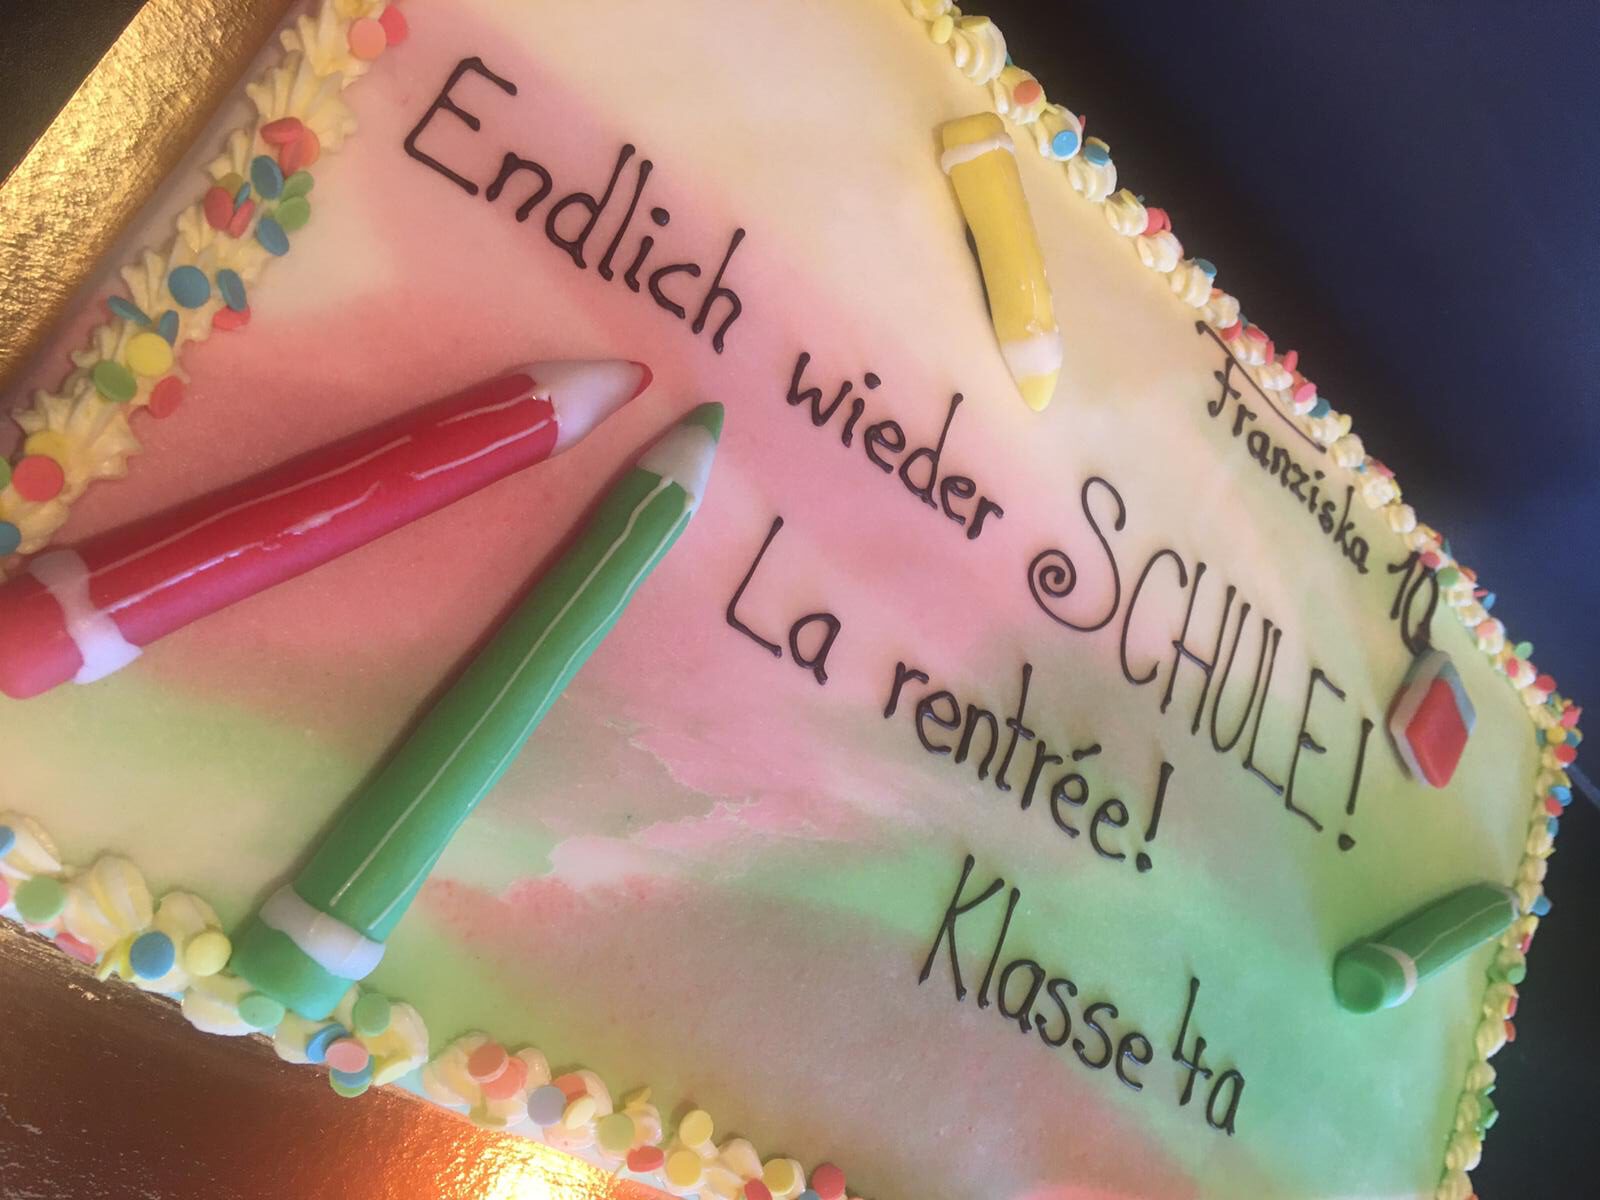 Franziska 10
Endlich wieder SCHULE!
La rentrée!
Klasse 4a